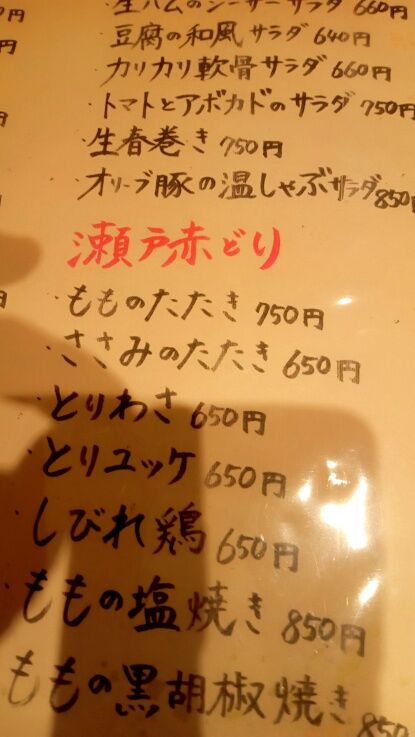 ・生ハムのシーザーサラダ 660円
・豆腐の和風サラダ 640円
・カリカリ軟骨サラダ 660円
・トマトとアボカドのサラダ 750円
・生春巻き 750円
・オリーブ豚の温しゃぶサラダ 850円
瀬戸赤どり
・もものたたき 750円
・ささみのたたき 650円
・とりわさ 650円
・とりユッケ 650円
・しびれ鶏 650円
・ももの塩焼き 850円
ももの黒胡椒焼き 850